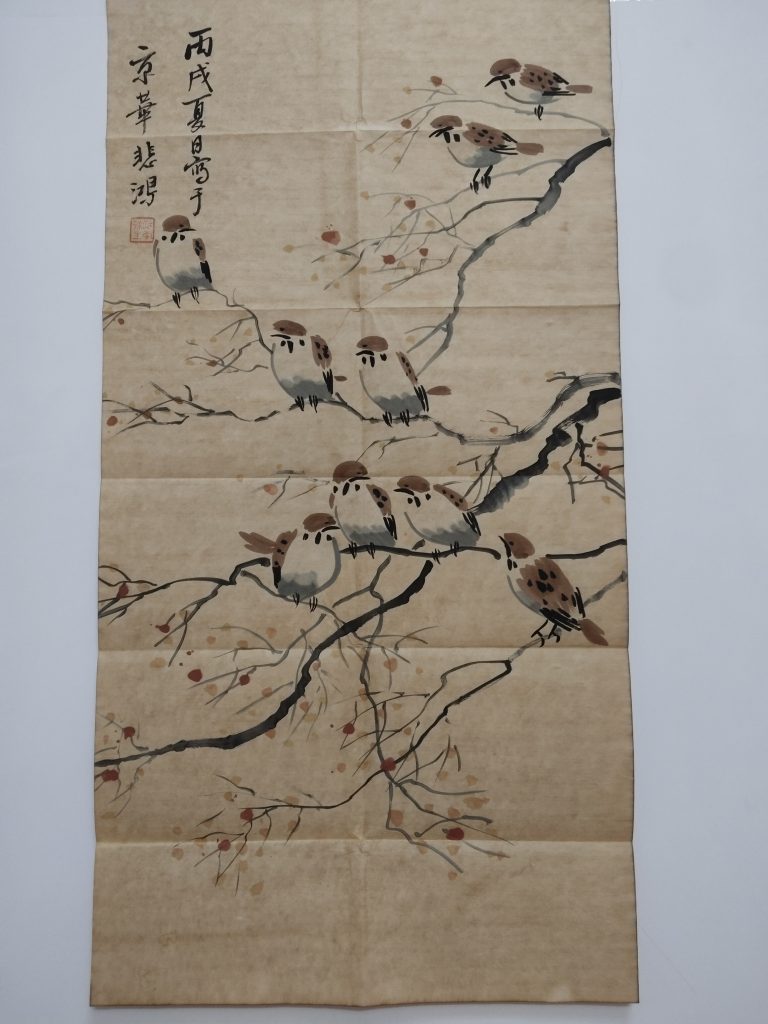 丙戌夏日寫于
京華悲鴻